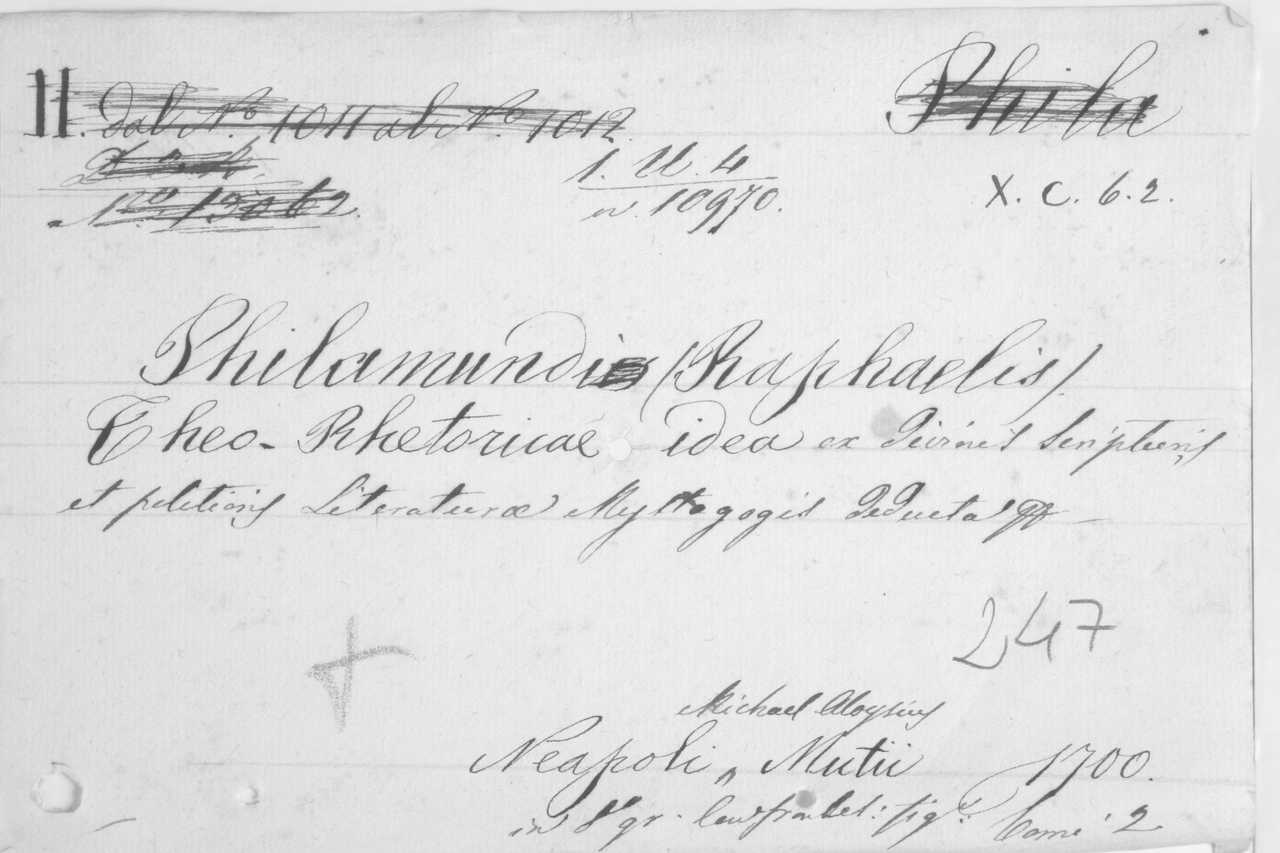 H. dal N.º 1011 al N.º 1012 Phila
1. U. 4
n. 10970. X. C. 6. 2.
Nº 13062.
Philamundi (Raphaelis)
Theo-Rhetoricae idea ex Divinis Scripturis
et politioris Literaturæ Mystagogis deducta
247
Michael Aloysius
Neapoli „ Mutii 1700.
in 8º gr. figº. Tomi 2